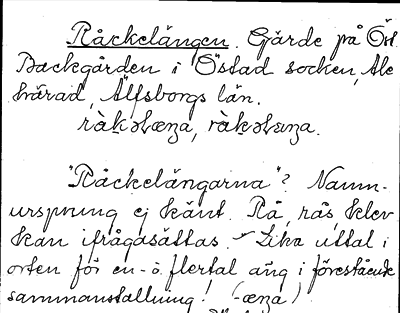 Råckelängen. Gärde på Öst
Backgården i Östad socken, Ale
härad, Älfsborgs län.
"Råckelängarna"? Namn-
ursprung ej känt. Rå, rås, klev
kan ifrågasättas. - Lika uttal i
orten för en- o. flertal äng i förestående
sammanställning! (-æŋa)